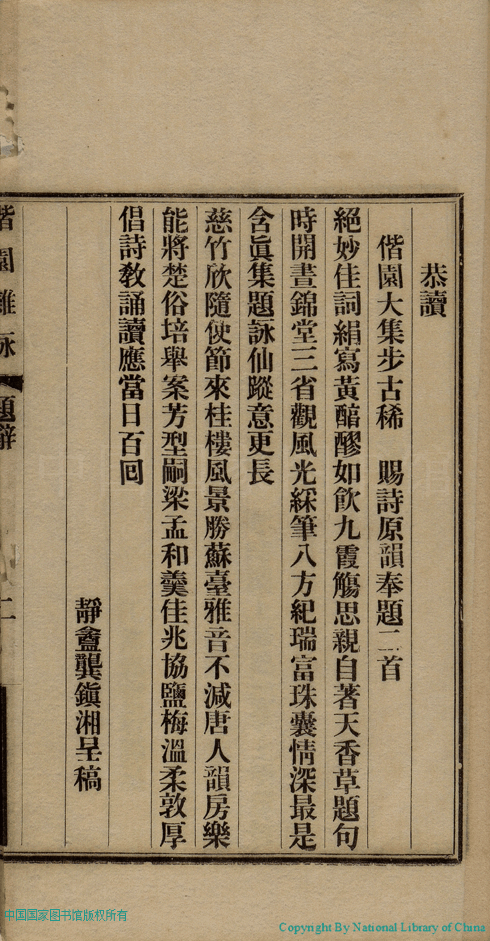 恭讀
偕園大集步古稀　賜詩原韻奉題二首
絕妙佳詞絹寫黃醅醪如飲九霞觴思親自著天香草題句
時開晝錦堂三省觀風光綵筆八方紀瑞富珠囊情深最是
含眞集題詠仙蹤意更長
慈竹欣隨使節來桂樓風景勝蘇臺雅音不減唐人韻房樂
能將楚俗培舉案芳型嗣梁孟和羹佳兆協鹽梅溫柔敦厚
倡詩敎誦讀應當日百回
靜盦龔鎭湘呈稿
偕園雜詠
題辭
二
中国国家图书馆版权所有
Copyright By National Library of China